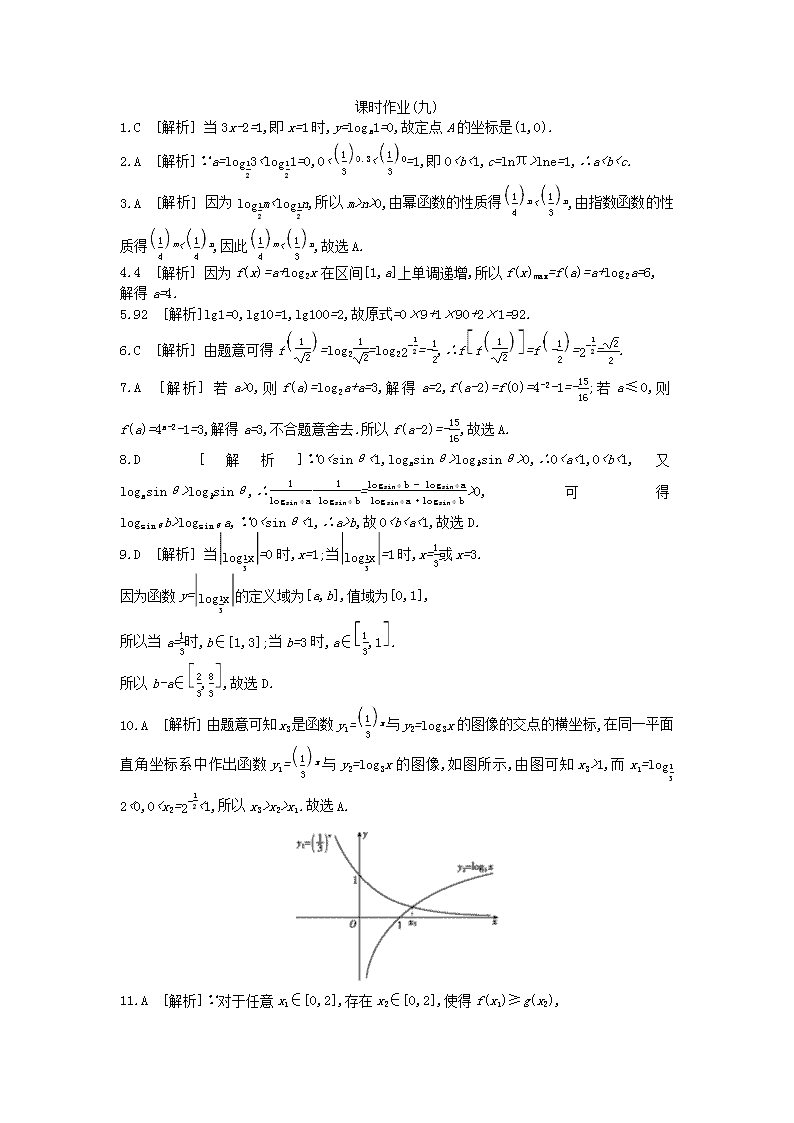 课时作业(九)
1.C [解析] 当3x-2=1,即x=1时,y=logₐ1=0,故定点A的坐标是(1,0).
2.A [解析]∵a=log_{1/2}3<log_{1/2}1=0,0<(1/3)^{0.3}<(1/3)^0=1,即0<b<1,c=lnπ>lne=1,∴a<b<c.
3.A [解析] 因为log_{1/2}m<log_{1/2}n,所以m>n>0,由幂函数的性质得(1/4)^n<(1/3)^n,由指数函数的性
质得(1/4)^m<(1/4)^n,因此(1/4)^m<(1/3)^n,故选A.
4.4 [解析] 因为f(x)=a+log₂x在区间[1,a]上单调递增,所以f(x)_{max}=f(a)=a+log₂a=6,
解得a=4.
5.92 [解析]lg1=0,lg10=1,lg100=2,故原式=0×9+1×90+2×1=92.
6.C [解析] 由题意可得f(1/√2)=log₂1/√2=log₂2^{-1/2}=-1/2,∴f[f(1/√2)]=f(-1/2)=2^{-1/2}=√2/2.
7.A [解析] 若a>0,则f(a)=log₂a+a=3,解得a=2,f(a-2)=f(0)=4^{-2}-1=-15/16;若a≤0,则
f(a)=4^{a-2}-1=3,解得a=3,不合题意舍去.所以f(a-2)=-15/16,故选A.
8.D [解析]∵0<sinθ<1,logₐsinθ>log_b sinθ>0,∴0<a<1,0<b<1,又
logₐsinθ>log_b sinθ,∴1/log_{sinθ}a-1/log_{sinθ}b=(log_{sinθ}b-log_{sinθ}a)/(log_{sinθ}a·log_{sinθ}b)>0,可得
log_{sinθ}b>log_{sinθ}a,∵0<sinθ<1,∴a>b,故0<b<a<1,故选D.
9.D [解析] 当|log_{1/3}x|=0时,x=1;当|log_{1/3}x|=1时,x=1/3或x=3.
因为函数y=|log_{1/3}x|的定义域为[a,b],值域为[0,1],
所以当a=1/3时,b∈[1,3];当b=3时,a∈[1/3,1].
所以b-a∈[2/3,8/3],故选D.
10.A [解析] 由题意可知x₃是函数y₁=(1/3)^x与y₂=log₃x的图像的交点的横坐标,在同一平面
直角坐标系中作出函数y₁=(1/3)^x与y₂=log₃x的图像,如图所示,由图可知x₃>1,而x₁=log_{1/3}
2<0,0<x₂=2^{-1/2}<1,所以x₃>x₂>x₁.故选A.
y₁=(1/3)^x
y
y₂=log₃x
1
O
1
x₃
x
11.A [解析]∵对于任意x₁∈[0,2],存在x₂∈[0,2],使得f(x₁)≥g(x₂),